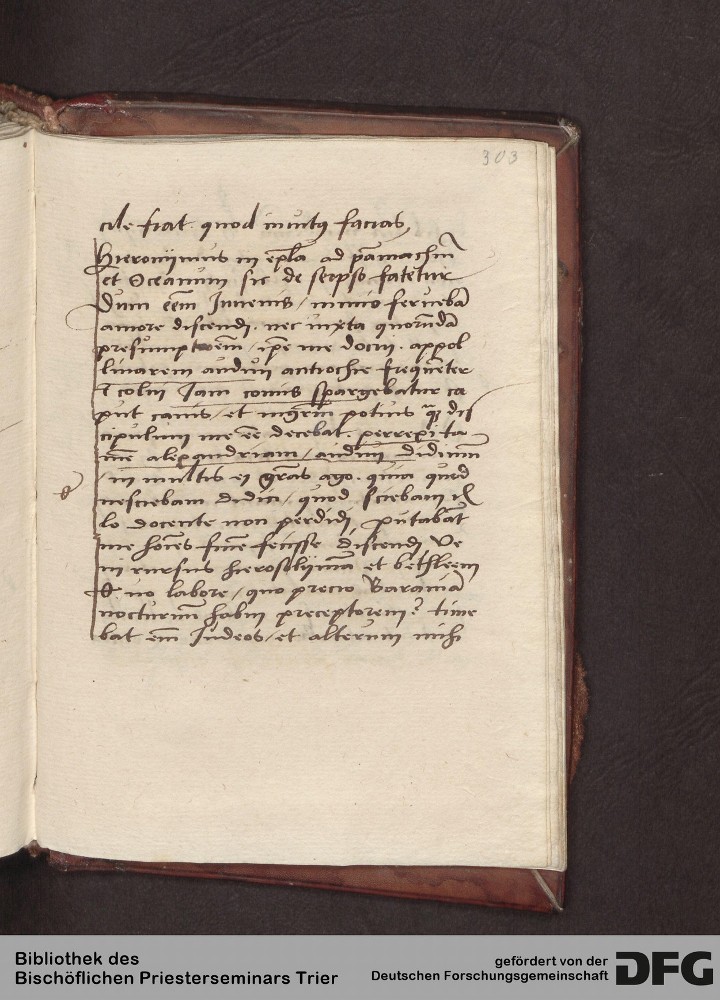 303
cile fiat quod inuitus facias
Hieronijmus in ep̄la ad pāmachiū
et Oceanum sic de seipso fatetur
Dum eēm Juuenis / miro feruebā
amore discendi. nec iuxta quorūdā
presumptoēm / ip̄e me docui. appol
linarem audiui antiochie frequēter
et colui Jam comis spargebatur ca
put canis / et mgr̄m potius quā dis
cipulum me eē decebat. perrexi ta
mē alexandriam / audiui didimū
/ in multis ei grās ago. quia quod
nesciebam didici / quod sciebam il
lo docente non perdidi Putabāt
me hoīes finē fecisse discendi Ve
ni rursus hierosolijmā et bethleem
Et. no labore / quo precio Baraniā
nocturnū habui preceptorem? time
bat eīm Judeos / et alterum mihi
Bibliothek des
Bischöflichen Priesterseminars Trier
gefördert von der
Deutschen Forschungsgemeinschaft
DFG